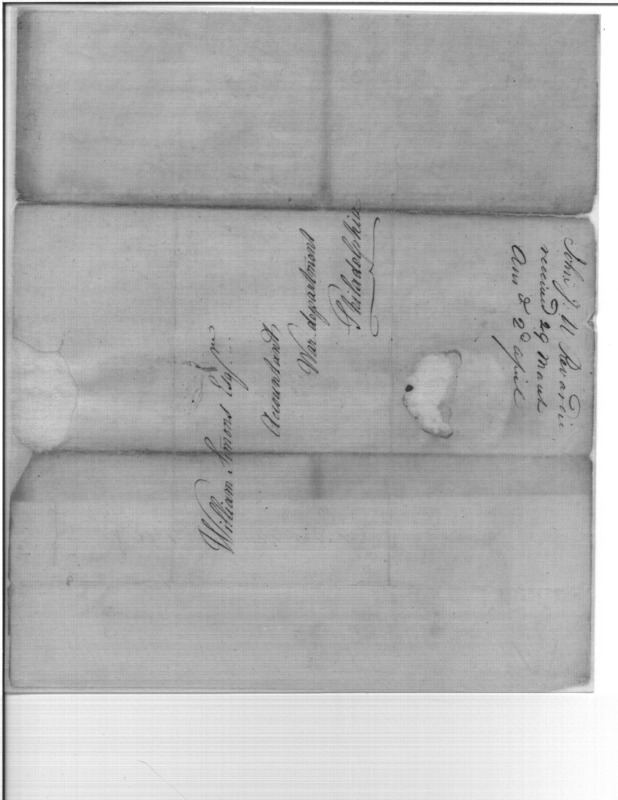 William Simons Esqr
Accountant
War department
Philadelphia
John J. U.
received 29 March
Ans d 2d april